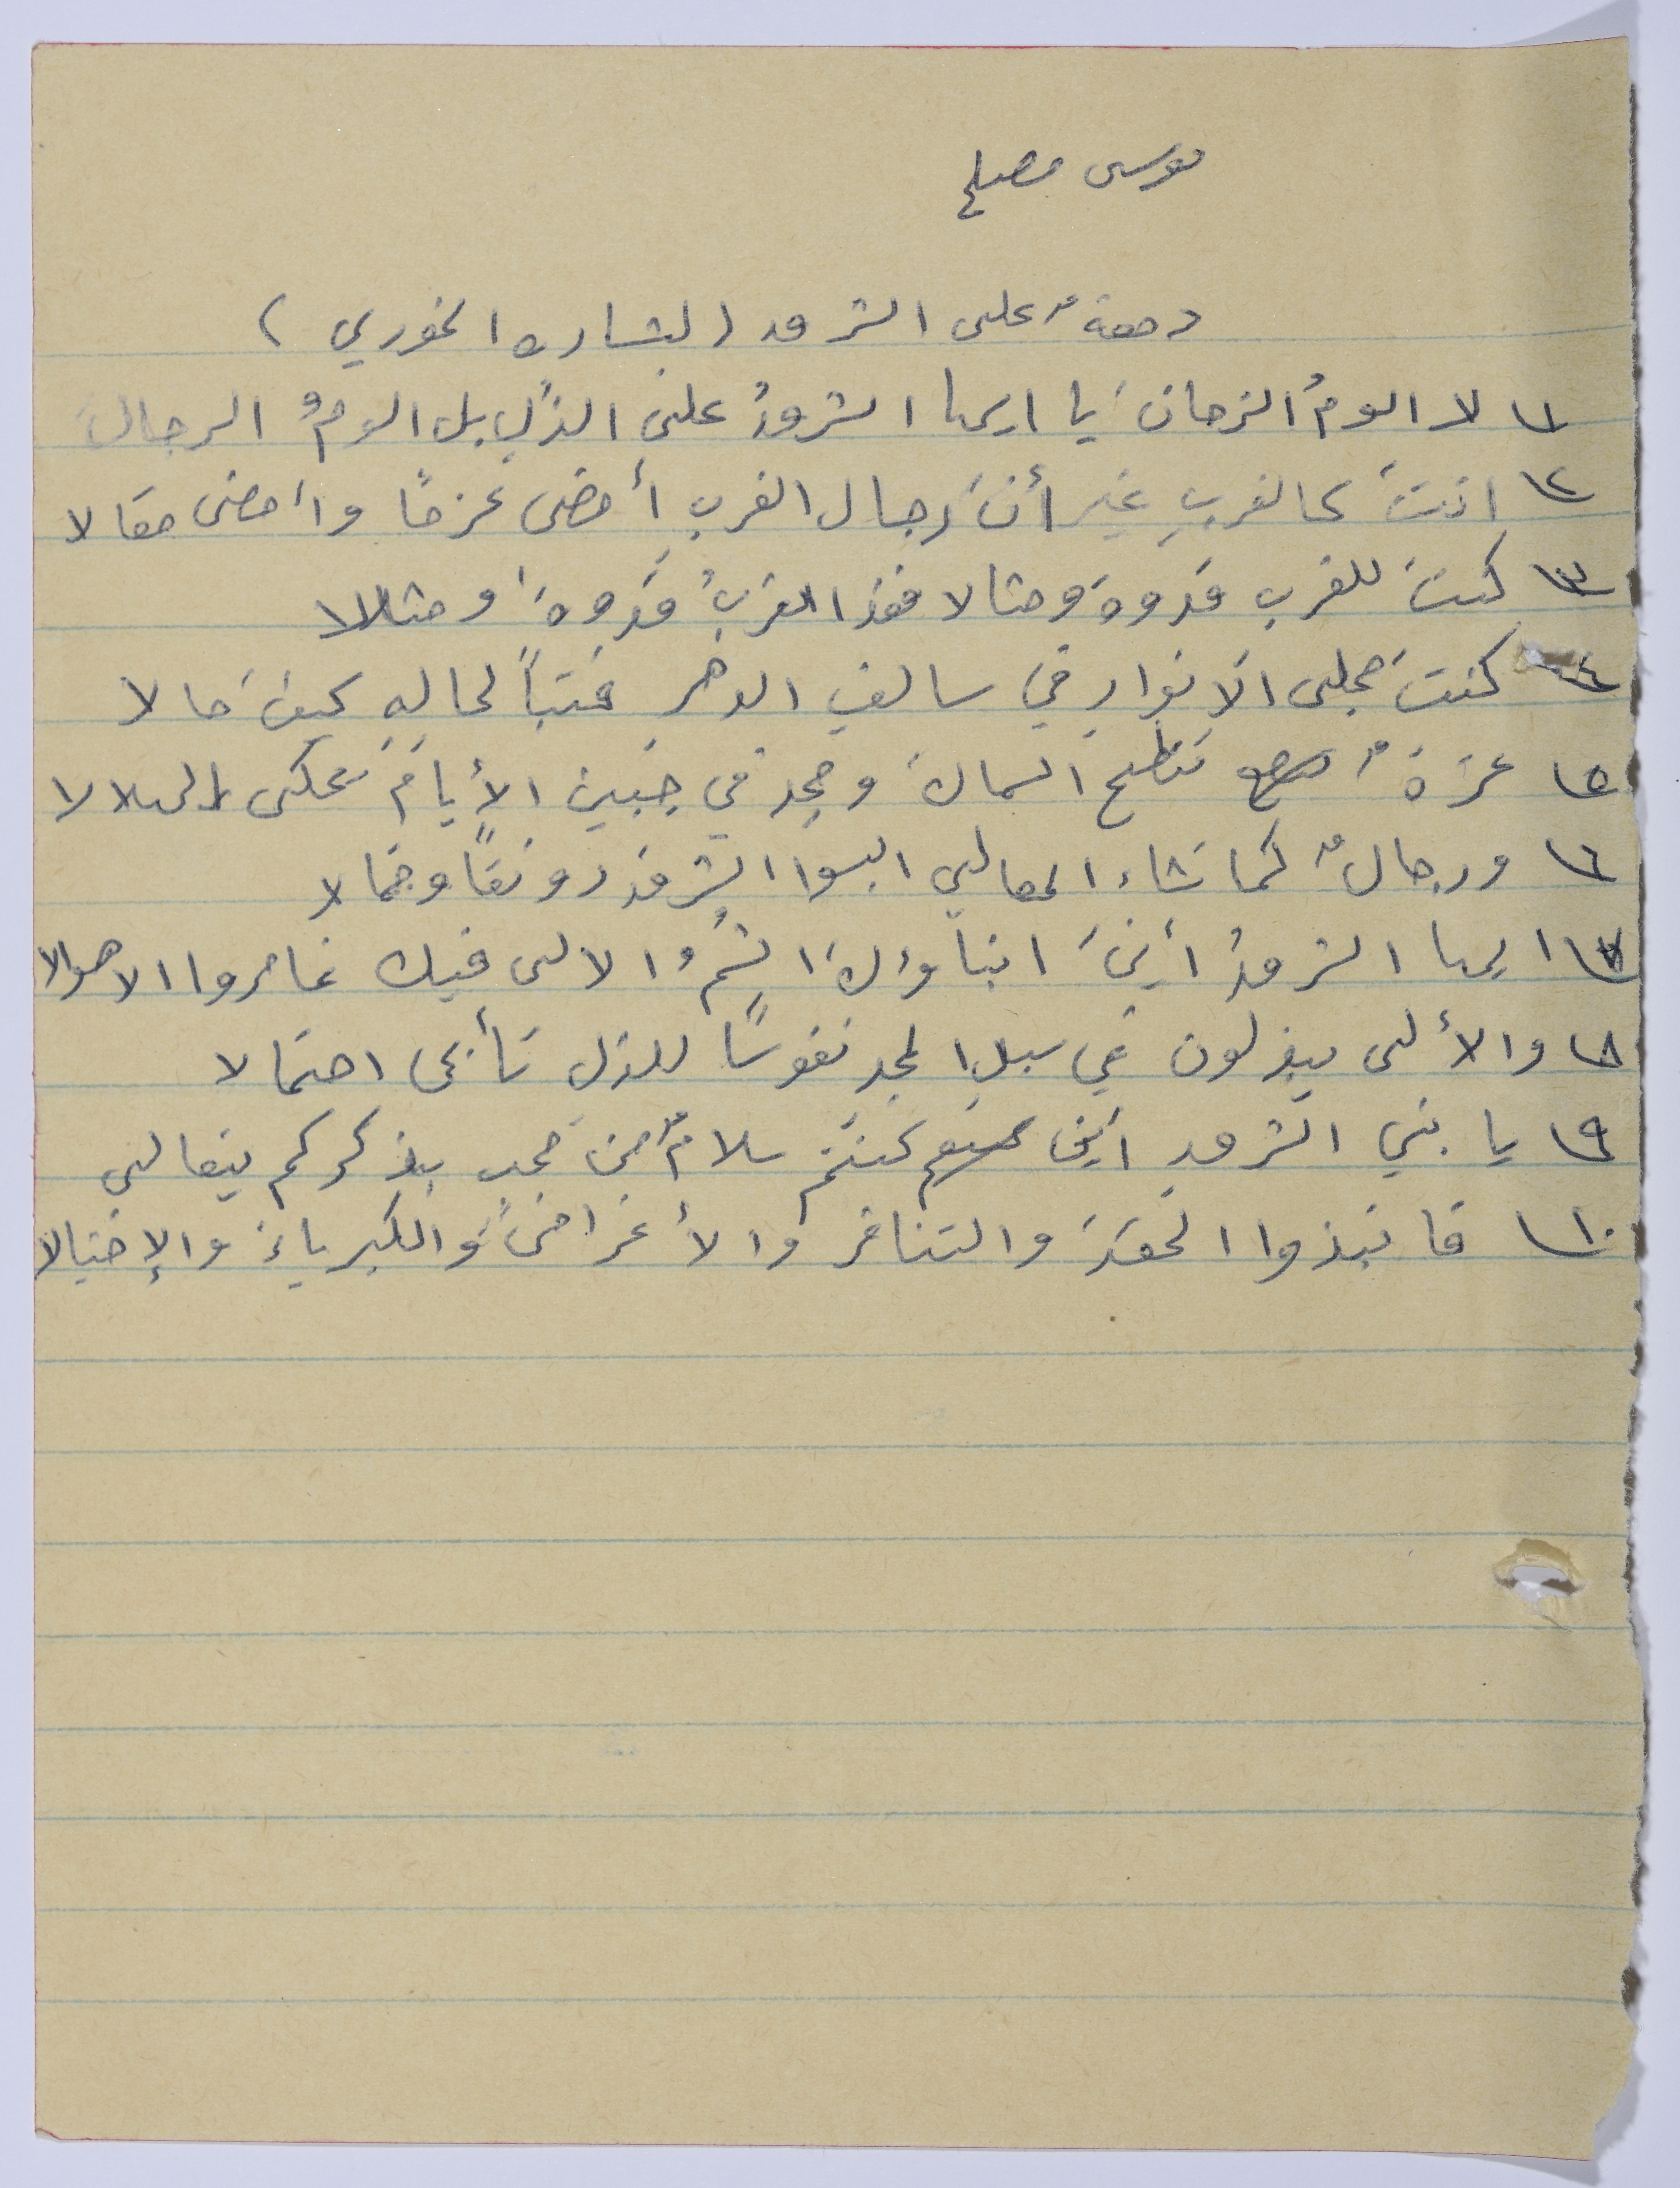 موسى مصلح
دمعةٌ على الشرق (لبشاره الخوري)
١ لا الومُ الزمانَ يا ايها الشرقُ على الذلِ بل الومُ الرجالَ
٢ انتَ كالغربِ غير أنَ رجال الغربِ أمضى عزمًا وأمضى مقالا
٣ كنتَ للغرب قدوةً ومثالا فغدا الغربُ قدوةً ومثالا
٤ كنتَ مجلى الانوارِ في سالفِ الدهرِ فتباً لحالهِ كيفَ حالا
٥ عزةٌ تنطح السماكَ ومجد في جبين الأيامَ تحكى الهلالا
٦ ورجالٌ كما تشاء المعالي البسوا الشرقَ رونقاً وجمالا
٧ ايها الشرقُ أينَ ابناؤكَ الشمُ الالى فيك غامروا الاهوالا
٨ والألى يبذلون في سبل المجد نفوسًا للذل تأبى احتمالا
٩ يا بني الشرقِ اينَ كنتم سلامٌ من محبٍ بذكركم يتعالى
١٠ فانبذوا الحقدَ والتنافر والأغراضَ والكبرياءَ والإختيالا